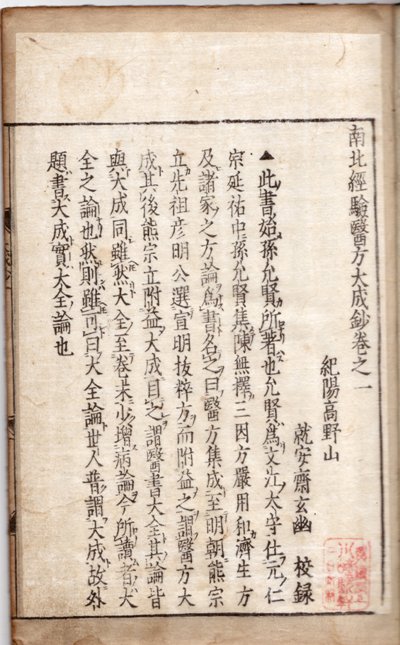 南北經驗醫方大成鈔卷之一
紀陽高野山
就安齋玄幽 校録
▲此書始孫允賢所著也允賢爲文江太守仕元仁
宗延祐中孫允賢集陳無擇三因方嚴用和濟生方
及諸家之方論爲書名之曰醫方集成至明朝熊宗
立先祖彦明公選宣明抜粹方而附益之謂醫方大
成其後熊宗立附益大成目之謂醫書大全其論皆
與大成同雖然大全至卷末少増病論今所讀者大
全之論也然則雖可曰大全論世人普謂大成故外
題書大成實大全論也